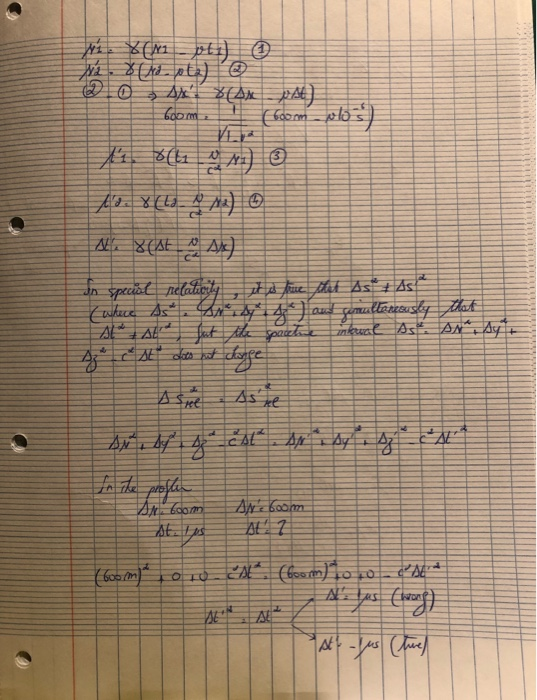 x'1 = γ(x1 - vt1) ①
x'2 = γ(x2 - vt2) ②
② - ① ⇒ Δx' = γ(Δx - vΔt)
600m = 1/√1-v² (600m - v10⁻⁶s)
t'1 = γ(t1 - v/c² x1) ③
t'2 = γ(t2 - v/c² x2) ④
Δt' = γ(Δt - v/c² Δx)
In special relativity, it is true that Δs² ≠ Δs'²
(where Δs² = Δx² + Δy² + Δz²) and simultaneously that
Δt² ≠ Δt'², but the spacetime interval Δs² = Δx² + Δy² +
Δz² - c² Δt² does not change
Δs² = Δs'²
Δx² + Δy² + Δz² - c²Δt² = Δx'² + Δy'² + Δz'² - c² Δt'²
In the problem
Δx = 600m Δx' = 600m
Δt = 1 μs Δt' = ?
(600m)² + 0 + 0 - c²Δt² = (600m)² + 0 + 0 - c²Δt'²
Δt' = 1 μs (wrong)
Δt'² = Δt²
Δt' = -1 μs (true)